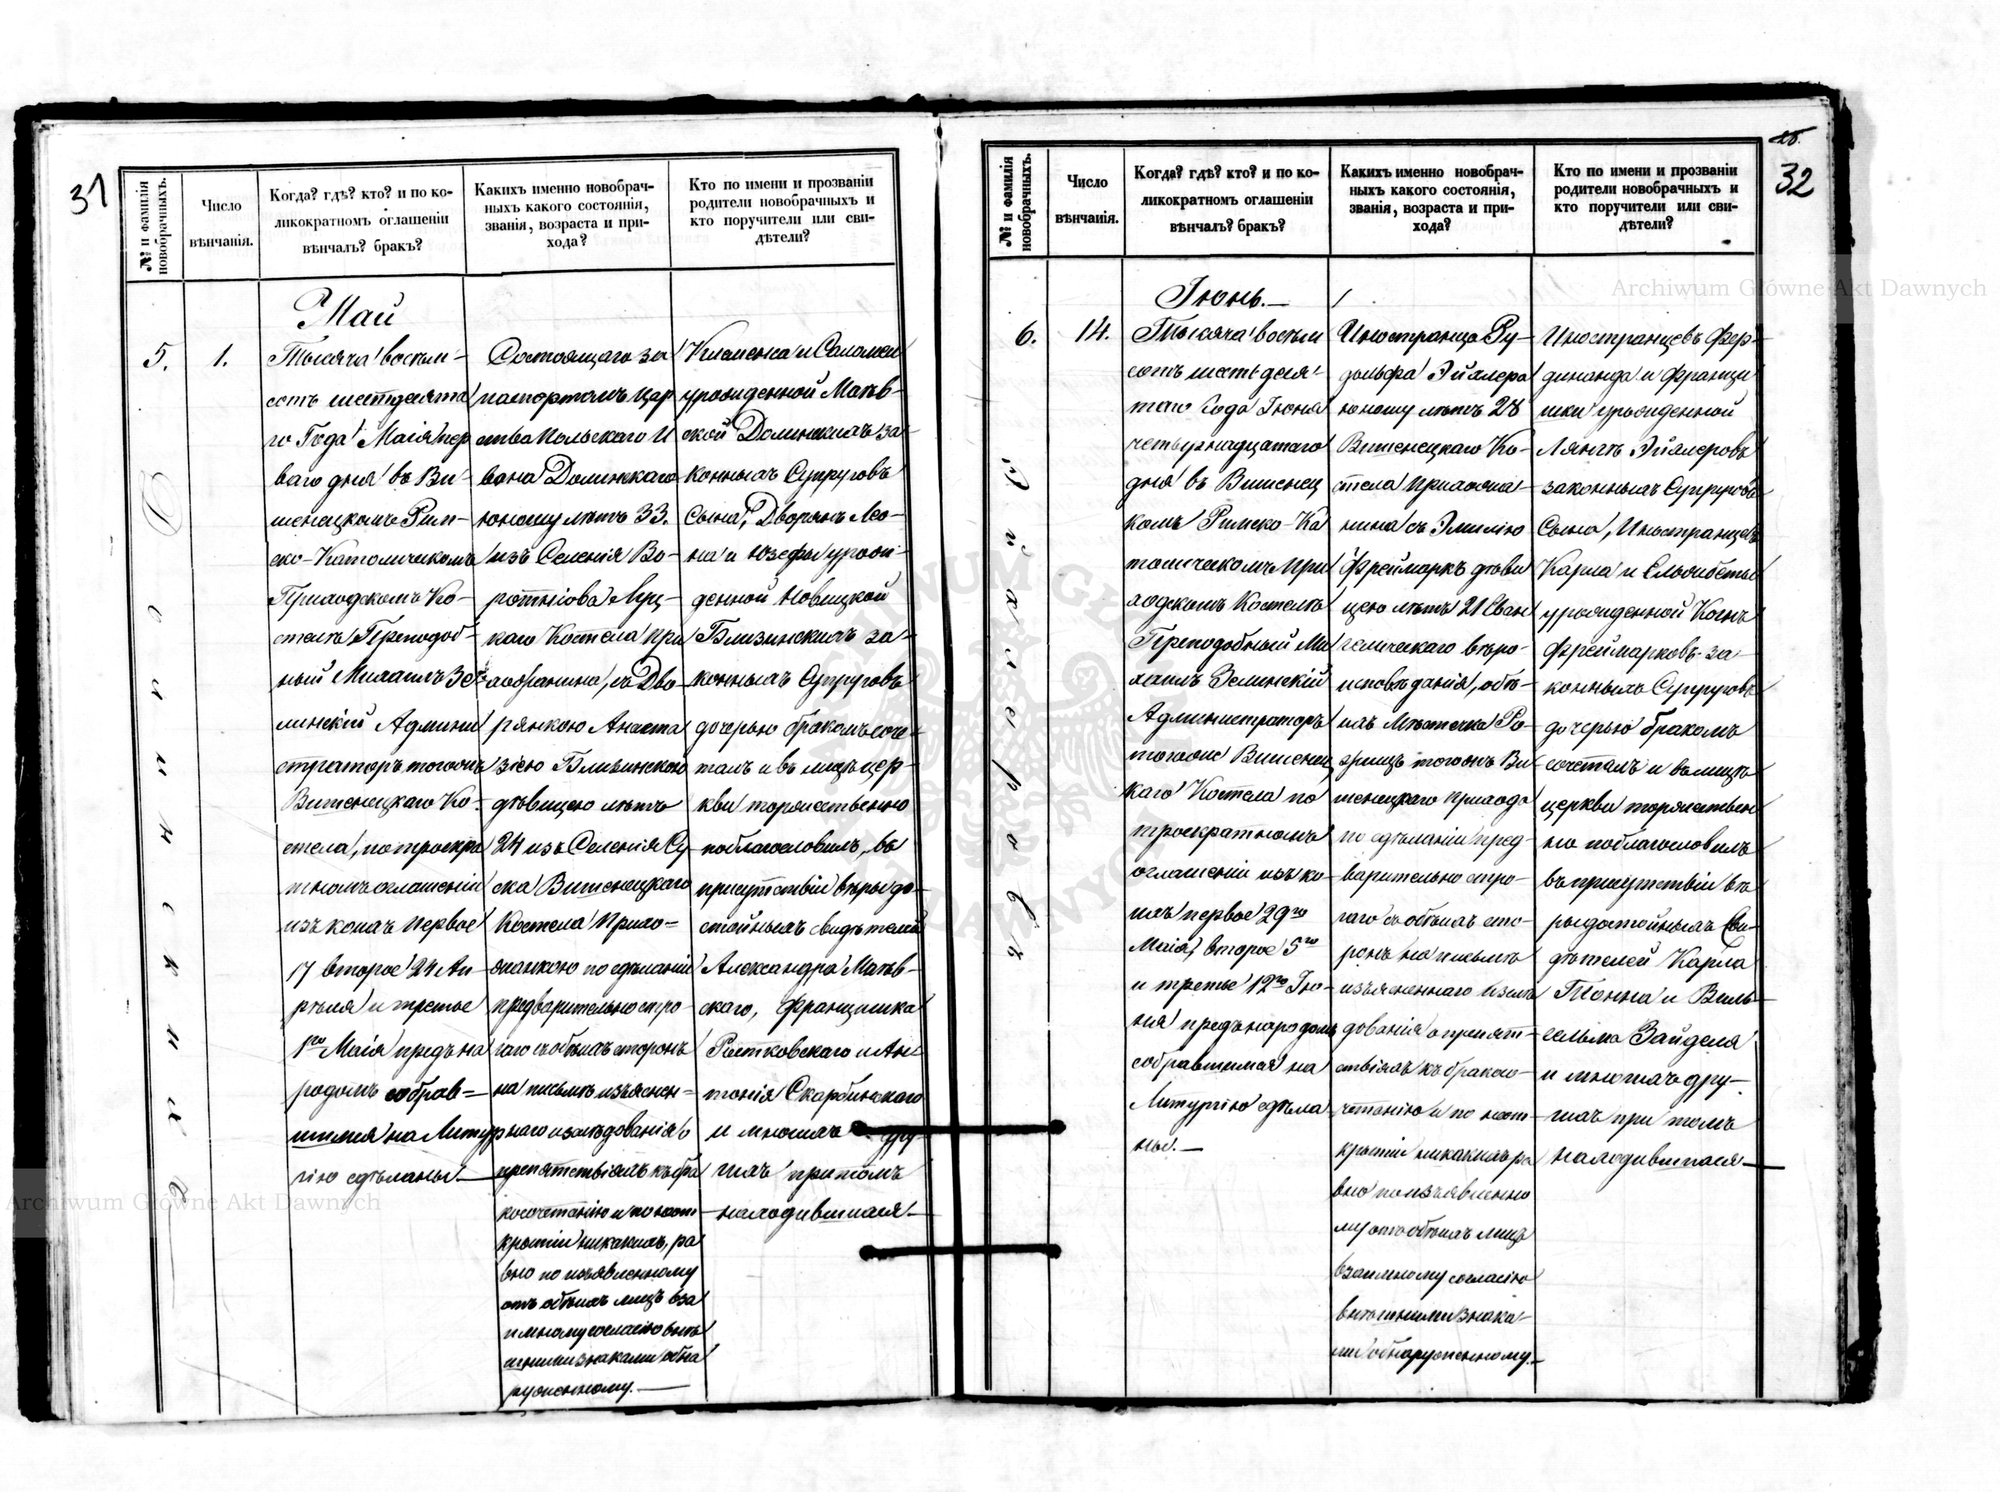 31
№ и фамилія новобрачныхъ.
Число вѣнчанія.
Когда? гдѣ? кто? и по ко-
ликократномъ оглашеніи
вѣнчалъ? бракъ?
Какихъ именно новобрач-
ныхъ какого состоянія,
званія, возраста и при-
хода?
Кто по имени и прозваніи
родители новобрачныхъ и
кто поручители или сви-
дѣтели?
5.
1.
Май
Тысяча восем-
сотъ шестдесята
го Года Маія пер
ваго дня въ Ви-
шенецкомъ Рим-
ско-Католическомъ
Приходскомъ Ко-
стелѣ Преподоб-
ный Михаилъ Зе-
линскій Админи
страторъ тогожъ
Вишенецкаго Ко-
стела, по троекра
тномъ оглашеніи
изъ коихъ первое
17 второе 24 Ап-
рѣля и третье
1го Маія предъ на
родомъ собрав-
шимся на Литур
гію сдѣланы.—
Состоящаго за
паспортомъ Цар
ства Польскаго И
вана Долинскаго
юношу лѣтъ 33.
изъ Селенія Во-
ротнiова Луц-
каго Костела При
хожанина, съ Дво-
рянкою Анаста
зіею Близинскою
дѣвицею лѣтъ
24 изъ Селенія Су
ска Вишенецкаго
Костела Прихо-
жанкою по сдѣланіи
предварительно стро-
гаго съ обѣихъ сторонъ
на письмѣ изъяснен-
наго изслѣдованія о
препятствіяхъ къ бра
косочетанію и по неот
крытіи никакихъ, ра
вно по изъявленному
отъ обѣихъ лицъ вза
имному согласію внѣ
шними знаками обна
руженному.—
Клеменса и Саломеи
урожденной Маев-
ской Долинскихъ за
конныхъ Супруговъ
Сына, Дворянъ Лео-
на и Юзефы урож-
денной Новицкой
Близинскихъ за-
конныхъ Супруговъ
дочерью бракомъ соче-
талъ и въ лицѣ цер-
кви торжественно
поблагословилъ, въ
присутствіи вѣры до-
стойныхъ свидѣтелей
Александра Маев-
скаго, Францишка
Ростковскаго и Ан-
тонія Скарбинскаго
и многихъ дру-
гихъ при томъ
находившихся.—
32
№ и фамилія новобрачныхъ.
Число вѣнчанія.
Когда? гдѣ? кто? и по ко-
ликократномъ оглашеніи
вѣнчалъ? бракъ?
Какихъ именно новобрач-
ныхъ какого состоянія,
званія, возраста и при-
хода?
Кто по имени и прозваніи
родители новобрачныхъ и
кто поручители или сви-
дѣтели?
6.
14.
Эйхлеровъ
Іюнь.—
Тысяча восемь
сотъ шестьдеся-
таго Года Іюня
четырнадцатаго
дня въ Вишенец
комъ Римско-Ка
толическомъ При
ходскомъ Костелѣ
Преподобный Ми
хаилъ Зелинскій
Администраторъ
тогожъ Вишенец
каго Костела по
троекратномъ
оглашеніи изъ ко-
ихъ первое 29го
Маія, второе 5го
и третье 12го Ію-
ня предъ народомъ
собравшимся на
Литургію сдѣла
ны.—
Иностранца Ру-
дольфа Эйхлера
юношу лѣтъ 28
Вишенецкаго Ко-
стела прихожа-
нина съ Эмилію
Фреймаркъ дѣви
цею лѣтъ 21 Еван
гелическаго вѣро-
исповѣданія, обѣ-
ихъ Мѣстечка Ро-
жищъ тогожъ Ви
шенецкаго прихода
по сдѣланіи пред-
варительно стро-
гаго съ обѣихъ сто-
ронъ на письмѣ
изъясненнаго изслѣ
дованія о препят-
ствіяхъ къ бракосо-
четанію и по неот
крытіи никакихъ ра
вно по изъявленно
му отъ обѣихъ лицъ
взаимному согласію
внѣшними знака-
ми обнаруженному.—
Иностранцевъ Фер-
динанда и Францi
шки урожденной
Лянгъ Эйхлеровъ
законныхъ Супруговъ
Сына, Иностранцевъ
Карла и Ельжбеты
урожденной Конъ
Фреймарковъ за-
конныхъ Супруговъ
дочерью бракомъ
сочеталъ и въ лицѣ
церкви торжествен
но поблагословилъ
въ присутствіи вѣ
ры достойныхъ Сви-
дѣтелей Карла
Тонна и Виль-
гельма Зайделя
и многихъ дру-
гихъ при томъ
находившихся—
Archiwum Główne Akt Dawnych
Archiwum Główne Akt Dawnych